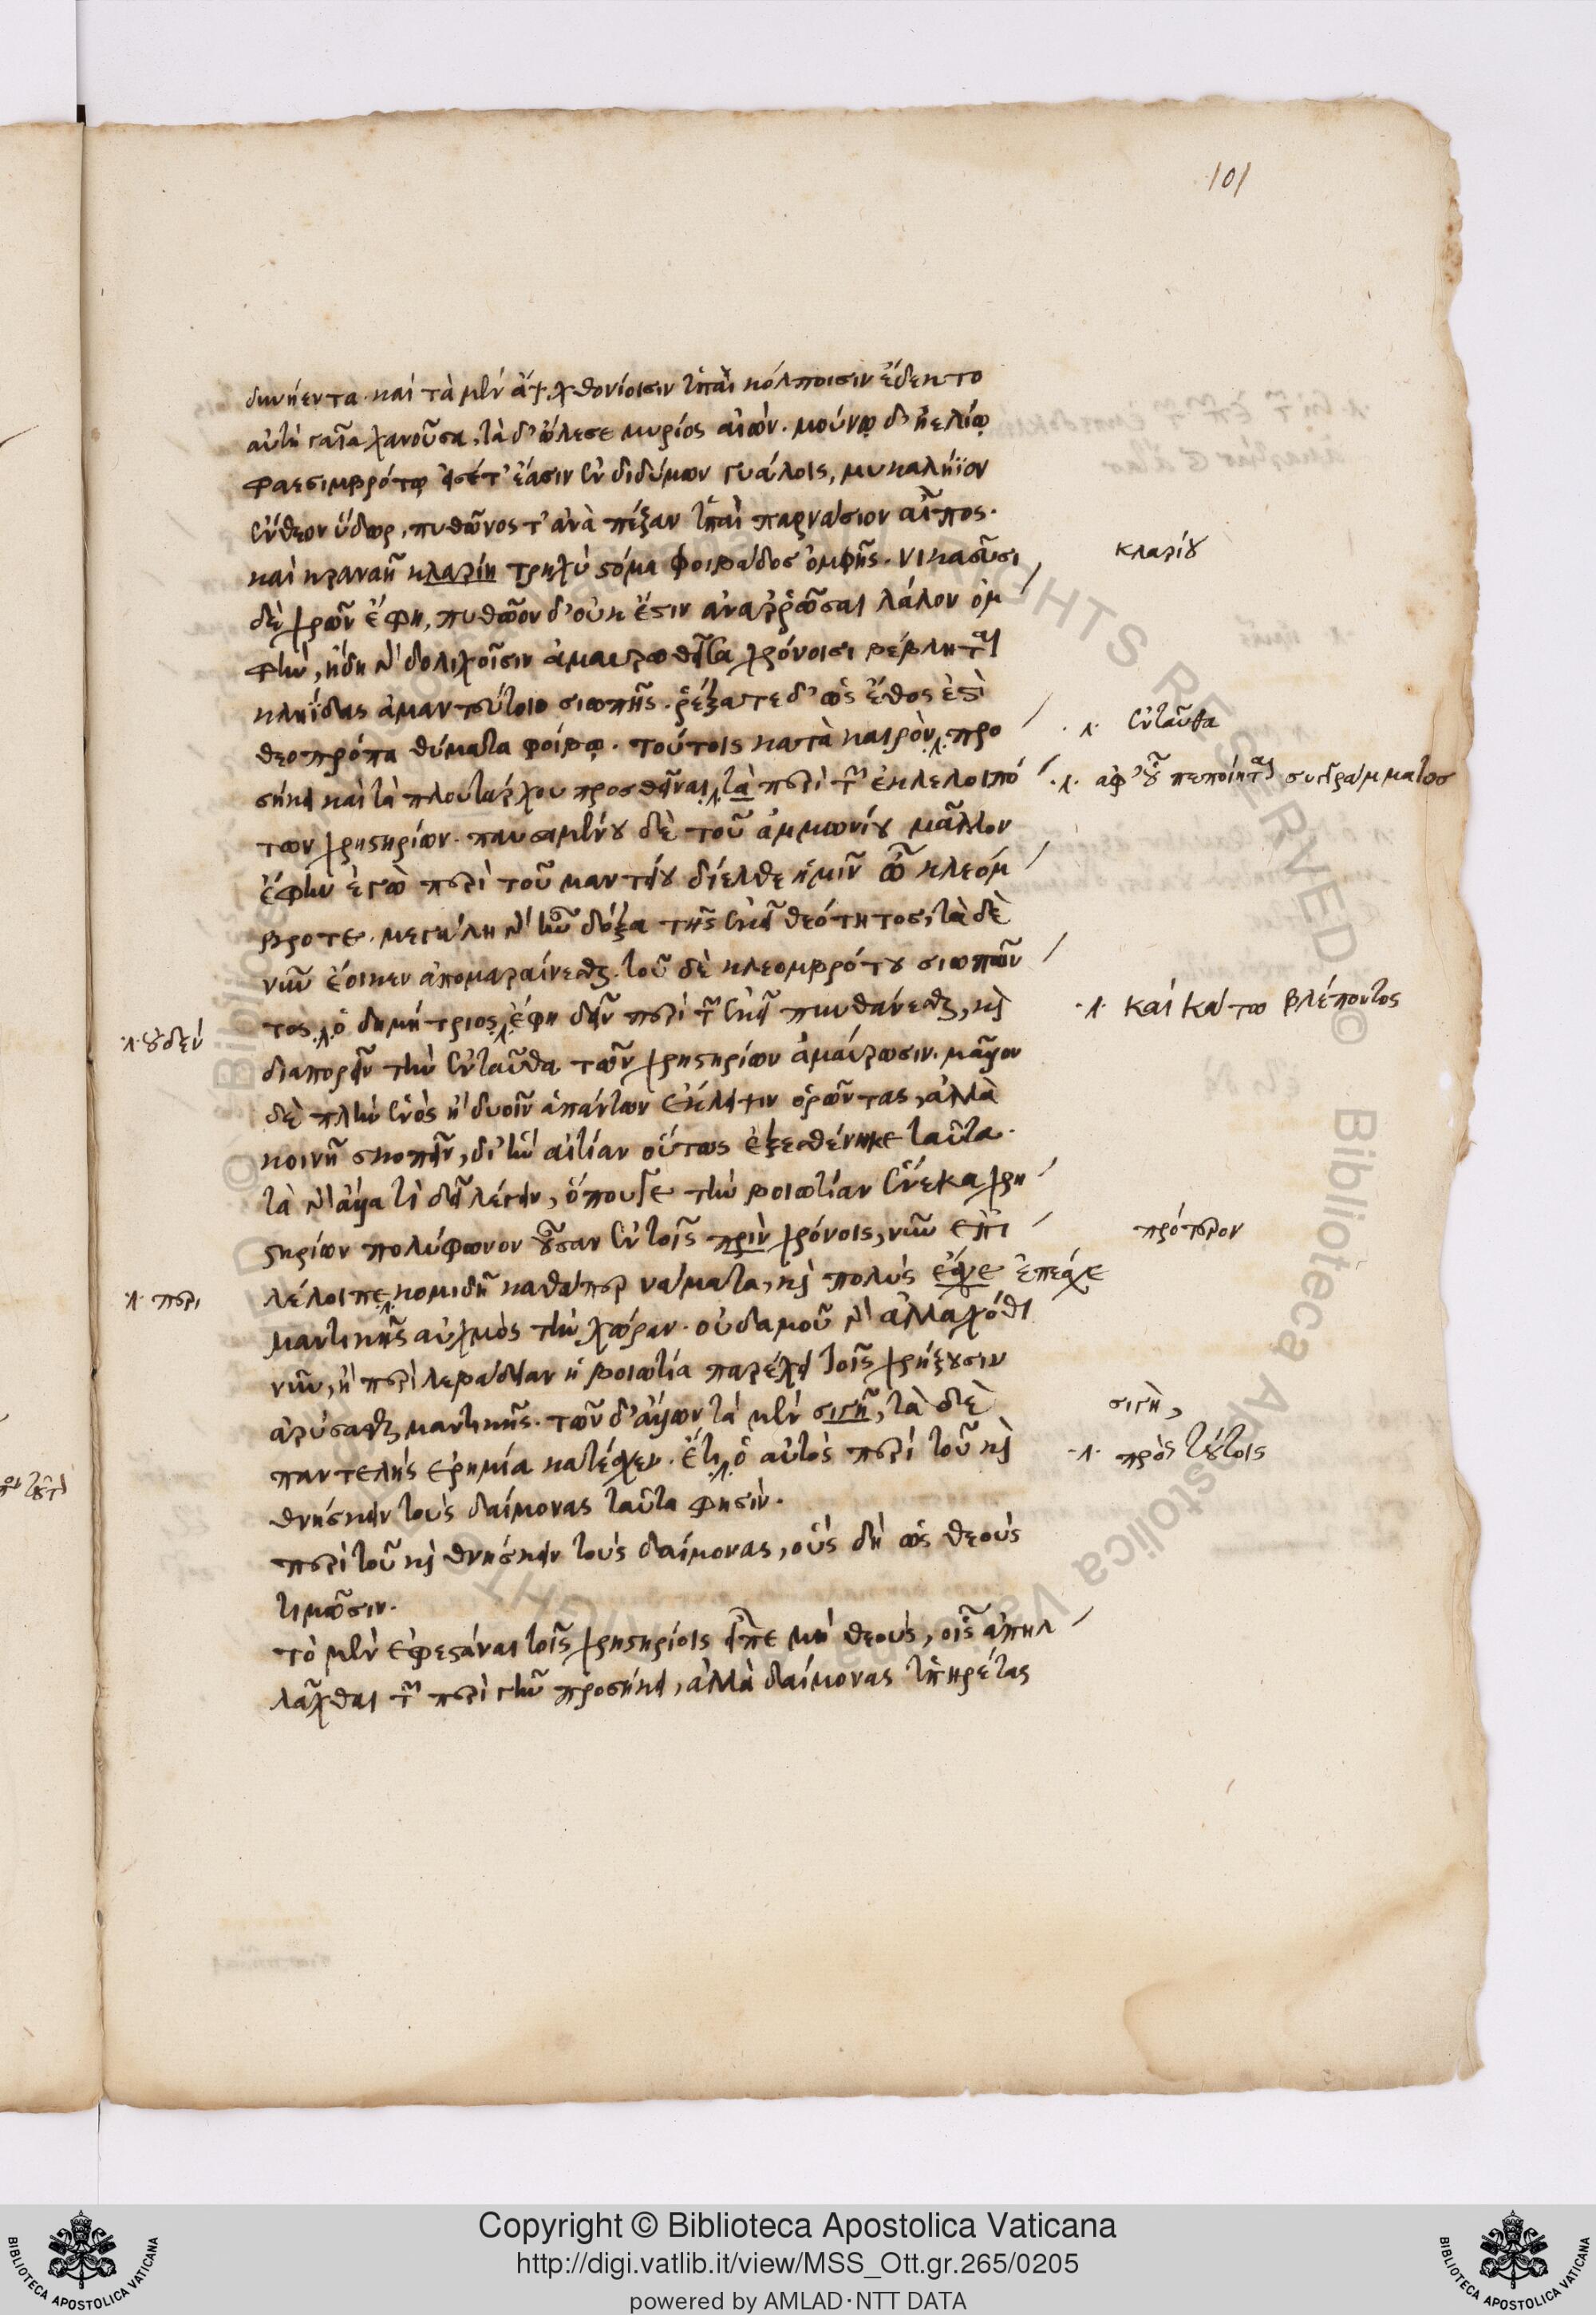 101
δινήεντα. καὶ τὰ μὲν ἂψ χθονίοισιν ὑπαὶ κόλποισιν ἔδεκτο
αὐτὴ γαῖα χανοῦσα, τὰ δ' ὤλεσε μυρίος αἰών. μούνῳ δ' ἠελίῳ
φαεσιμβρότῳ εἰσέτ' ἔασιν ἐν διδύμων γυάλοις, μυκαλήϊον
ἔνθεον ὕδωρ, πυθῶνος τ' ἀνὰ πέζαν ὑπαὶ παρνάσιον αἶπος.
καὶ κραναὴ κλαρίη τρηχὺ στόμα φοιβάδος ὀμφῆς. νικαεῦσι
κλαρίου
δὲ χρῶν ἔφη, πυθῶον δ' οὐκ ἔστιν ἀναῤῥῶσαι λάλον ὀμ
φὴν, ἤδη γὰρ δολιχοῖσιν ἀμαυρωθεῖσα χρόνοισι βέβληται
κληῗδας ἀμαντεύτοιο σιωπῆς. ῥέξατε δ' ὡς ἔθος ἐστὶ
θεοπρόπα θύματα φοίβῳ. τούτοις κατὰ καιρὸν προ
·λ· ἐνταῦθα
σήκει καὶ τὰ πλουτάρχου προσθεῖναι τὰ περὶ τῶν ἐκλελοιπό
·λ· ἀφ' οὗ πεποίηται συγγράμματος
των χρηστηρίων. παυσαμένου δὲ τοῦ ἀμμωνίου μᾶλλον
ἔφην ἐγὼ περὶ τοῦ μαντείου δίελθε ἡμῖν ὦ κλεόμ
βροτε. μεγάλη γὰρ ἦν δόξα τῆς ἐκεῖ θεότητος, τὰ δὲ
νῦν ἔοικεν ἀπομαραίνεσθαι. τοῦ δὲ κλεομβρότου σιωπῶν
τος, ὁ δημήτριος, ἔφη δεῖν περὶ τῶν ἐκεῖ πυνθάνεσθαι, καὶ
·λ· καὶ κάτω βλέποντος
·λ· οὐδὲν
διαπορεῖν τὴν ἐνταῦθα τῶν χρηστηρίων ἀμαύρωσιν. μᾶλλον
δὲ πλὴν ἑνὸς ἢ δυοῖν ἁπάντων ἔκλειψιν ὁρῶντας, ἀλλὰ
κοινῇ σκοπεῖν, δι' ἣν αἰτίαν οὕτως ἐξεσθένηκε ταῦτα.
τὰ γὰρ ἄλλα τί δεῖ λέγειν, ὅπουγε τὴν βοιωτίαν ἕνεκα χρη
στηρίων πολύφωνον οὖσαν ἐν τοῖς πρὶν χρόνοις, νῦν ἐπι
πρότερον
λέλοιπε κομιδῆ καθάπερ νάματα, καὶ πολὺς ἔσχε ἐπέσχε
·λ· περι
μαντικῆς αὐχμὸς τὴν χώραν. οὐδαμοῦ γὰρ ἀλλαχόθι
νῦν, ἢ περὶ λεβάδειαν ἡ βοιωτία παρέχει τοῖς χρήζουσιν
ἀρύσασθαι μαντικῆς. τῶν δ' ἄλλων τὰ μὲν σιγῆ, τὰ δὲ
σιγὴ,
παντελὴς ἐρημία κατέσχεν. ἔτι ὁ αὐτὸς περὶ τοῦ καὶ
·λ· πρὸς τούτοις
θνήσκειν τοὺς δαίμονας ταῦτα φησίν.
περὶ τοῦ καὶ θνήσκειν τοὺς δαίμονας, οὓς δὴ ὡς θεοὺς
τιμῶσιν.
τὸ μὲν ἐφεστάναι τοῖς χρηστηρίοις εἶπε μὴ θεοὺς, οἷς ἀπηλ
λᾶχθαι τῶν περὶ γῆν προσήκει, ἀλλὰ δαίμονας ὑπηρέτας
Copyright © Biblioteca Apostolica Vaticana
http://digi.vatlib.it/view/MSS_Ott.gr.265/0205
powered by AMLAD·NTT DATA